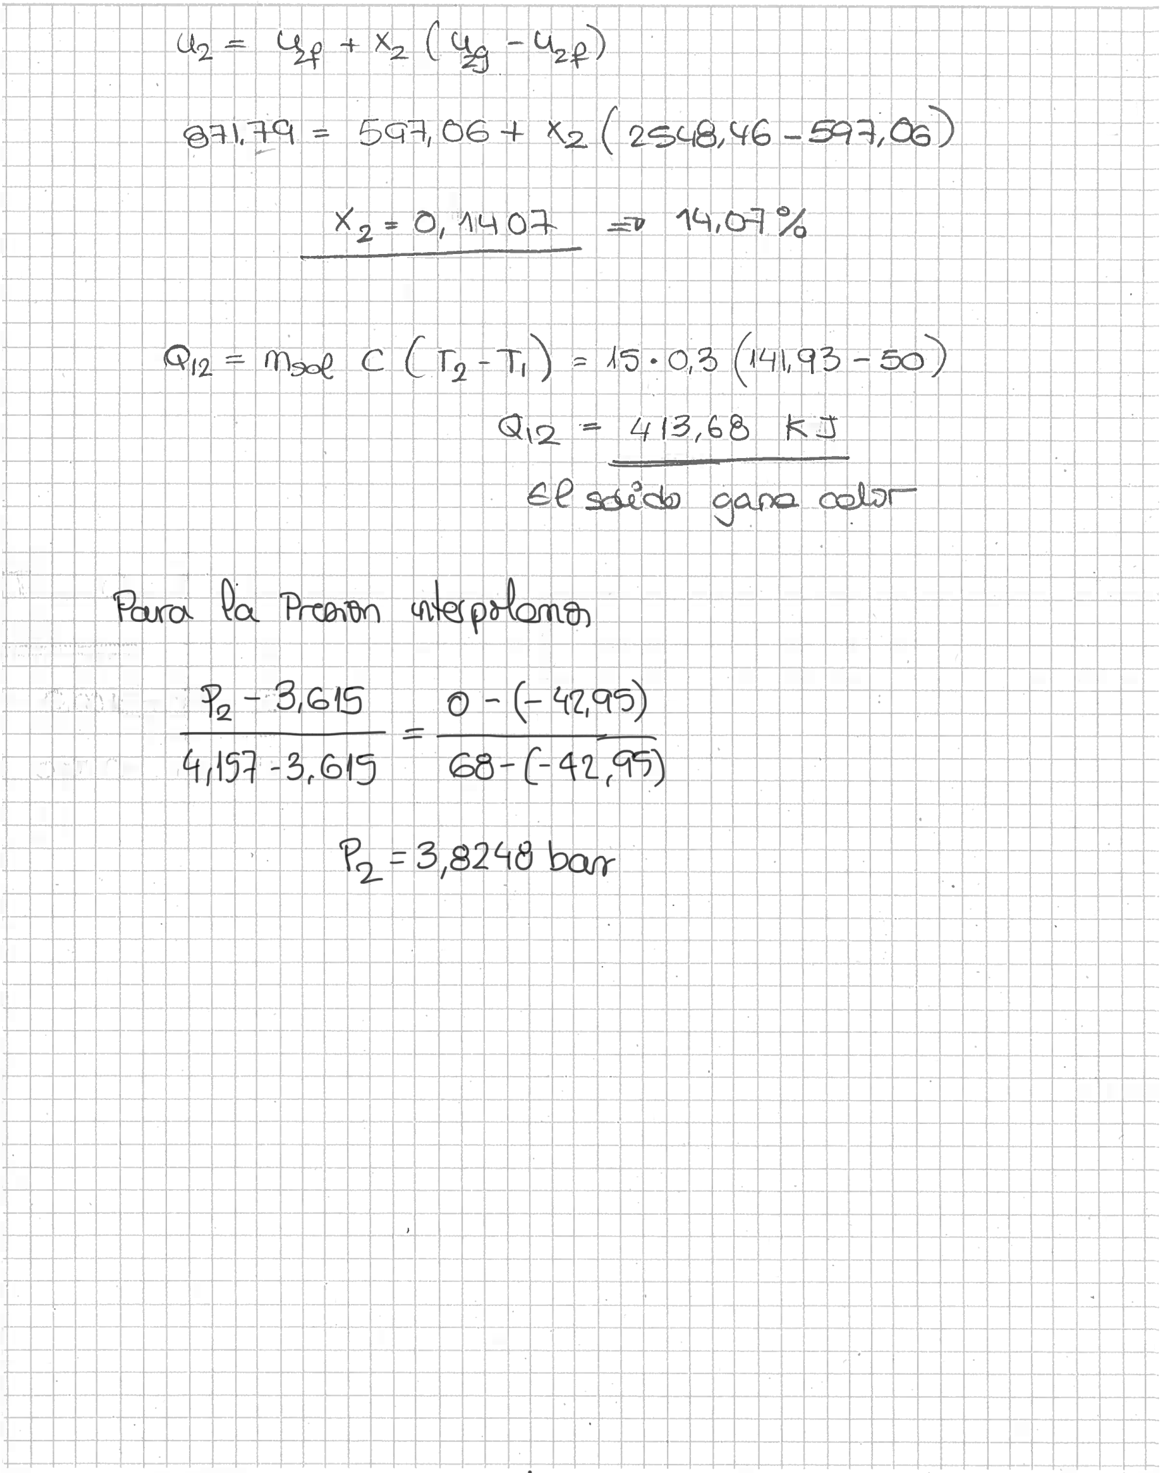 u₂ = u₂f + x₂ (u₂g - u₂f)
871,79 = 597,06 + x₂ (2548,46 - 597,06)
x₂ = 0,1407 ⇒ 14,07%
Q₁₂ = m sol C (T₂ - T₁) = 15 · 0,3 (141,93 - 50)
Q₁₂ = 413,68 KJ
El solido gana calor
Para la Presion interpolamos
P₂ - 3,615 / 4,157 - 3,615 = 0 - (-42,95) / 68 - (-42,95)
P₂ = 3,8248 bar